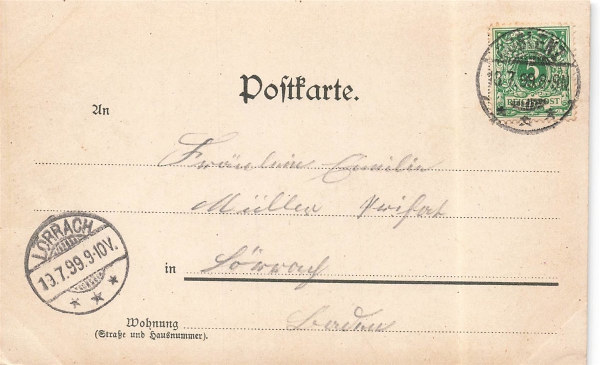 Postkarte.
5
REICHSPOST
13.7.99.9-10V.
An
Fräulein Emilie
Müller Privat
LÖRRACH
13.7.99.9-10V.
in Lörrach
Wohnung
(Straße und Hausnummer).
Baden